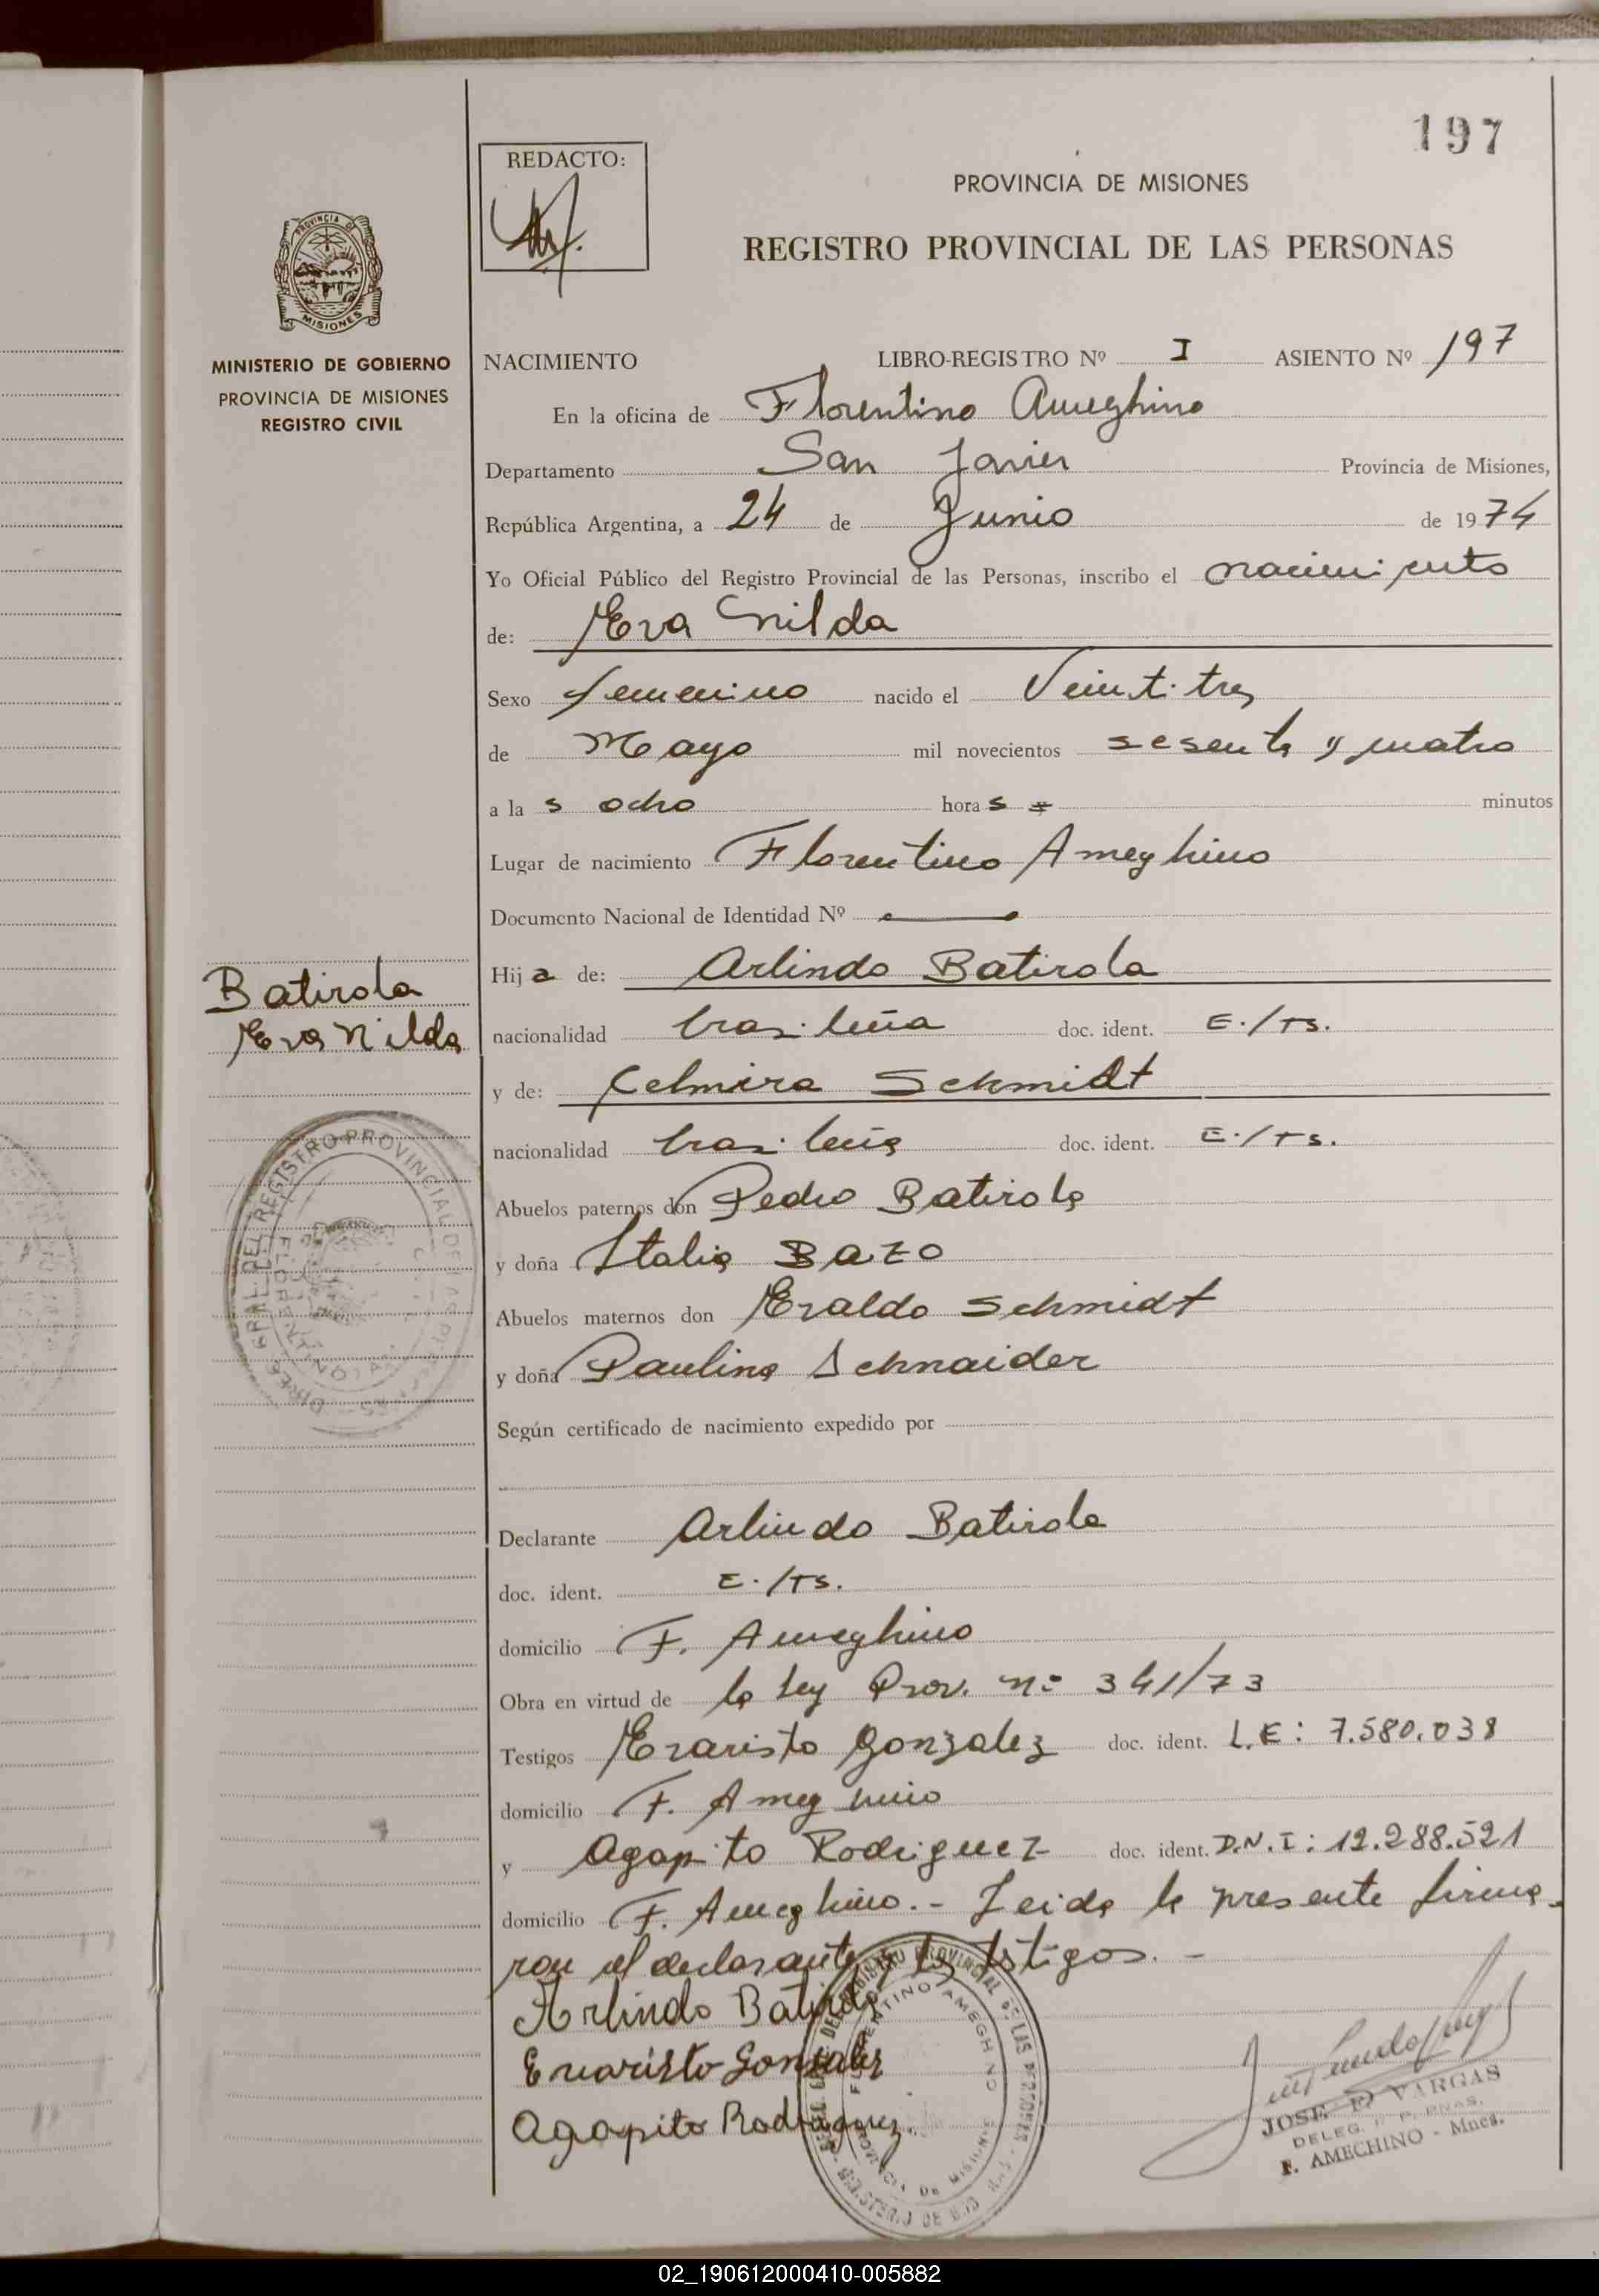 197
REDACTO:
PROVINCIA DE MISIONES
REGISTRO PROVINCIAL DE LAS PERSONAS
PROVINCIA DE
MISIONES
MINISTERIO DE GOBIERNO
PROVINCIA DE MISIONES
REGISTRO CIVIL
NACIMIENTO LIBRO-REGISTRO Nº I ASIENTO Nº 197
En la oficina de Florentino Ameghino
Departamento San Javier Provincia de Misiones,
República Argentina, a 24 de Junio de 1974
Yo Oficial Público del Registro Provincial de las Personas, inscribo el nacimiento
de: Eva Nilda
Sexo femenino nacido el Veintitres
de Mayo mil novecientos sesenta y cuatro
a la s ocho hora s = minutos
Lugar de nacimiento Florentino Ameghino
Documento Nacional de Identidad Nº —
Hij a de: Arlindo Batirola
Batirola
Eva Nilda
nacionalidad brasileña doc. ident. E./TS.
y de: Celmira Schmidt
nacionalidad brasileña doc. ident. E./TS.
Abuelos paternos don Pedro Batirola
y doña Italia Bazo
Abuelos maternos don Eraldo Schmidt
y doña Paulina Schnaider
Según certificado de nacimiento expedido por
Declarante Arlindo Batirola
doc. ident. E./TS.
domicilio F. Ameghino
Obra en virtud de la Ley Prov. nº 341/73
Testigos Evaristo Gonzalez doc. ident. L.E: 7.580.038
domicilio F. Ameghino
y Agapito Rodriguez doc. ident. D.N.I: 12.288.521
domicilio F. Ameghino.- Leida la presente firma-
ron el declarante y los testigos.-
Arlindo Batirola
Evaristo Gonzalez
Agapito Rodriguez
JOSE F. VARGAS
F. AMEGHINO - Mnes.
02_190612000410-005882